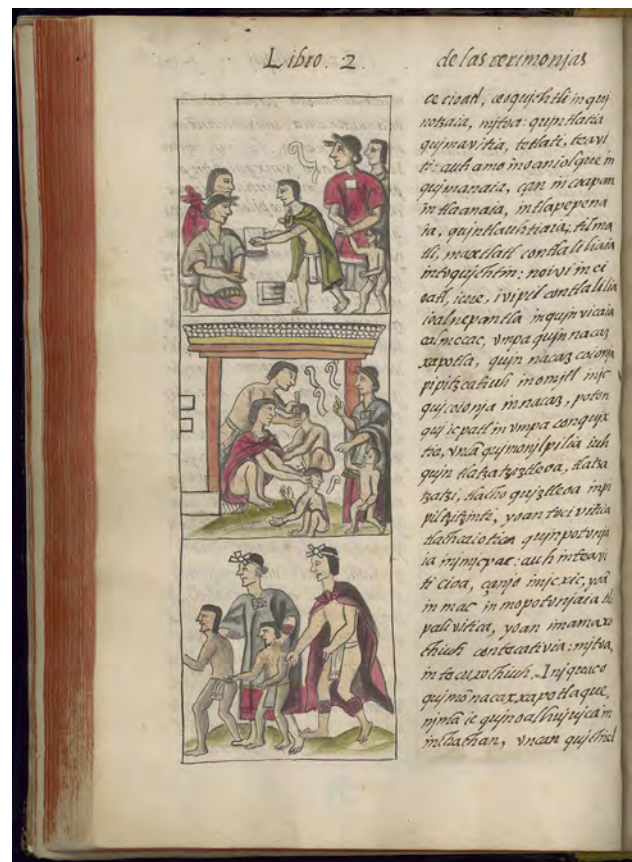 Libro. 2
de las cerimonjas
ce cioatl, ce oqujchtli in quj
notzaia, mjtoa: qujntlatia
qujmavitia, tetlati, teavi
ti: auh amo in oaniolque in
qujmanaia, çan in caapan
in tlaanaia, in tlapepena
ia, qujntlauhtiaia, tilma
tli, maxtlatl contlalilia
in toqujchtin: no ivi in ci
oatl, icue, ivipil contlalilia
ioalnepantla in qujnvicaia
calmecac, vmpa qujnnacaz
xapotla, qujn nacaz coionja
in omjtl injc
qujcoionja in nacaz, poton
quj icpatl in vmpa conqujx
tia,
qujn tlatza
tzatzi,
pilzitzinti, yoan toci vitica
tlachcaiotica qujnpotonja
ia injmjcpac: auh in teavi
ti cioa, çanjo imjcxic, yoã
in mac in mopotonjaia tla
palivitica, yoan imamaxo
chiuh contecativia: mjtoa,
in tecuxochiuh. Injquac o
qujmõnacazxapotlaque,
njmã ie
inchachan, vncan qujchiel